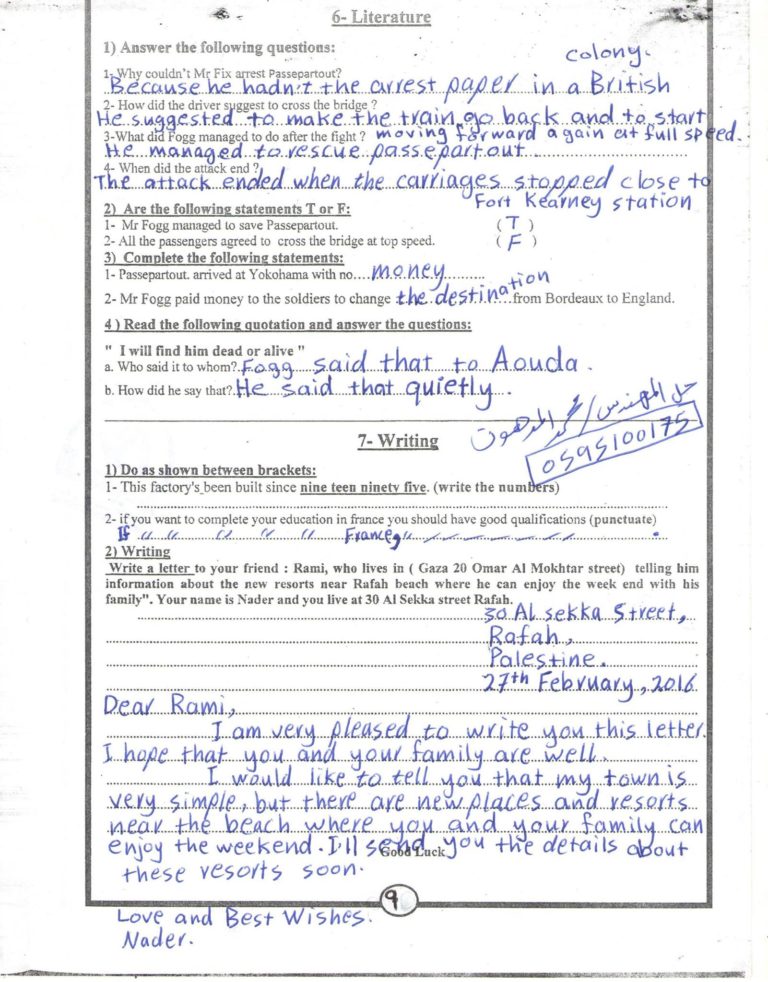 6- Literature
1) Answer the following questions:
colony.
1- Why couldn't Mr Fix arrest Passepartout?
Because he hadn't the arrest paper in a British
2- How did the driver suggest to cross the bridge ?
He suggested to make the train go back and to start
3-What did Fogg managed to do after the fight ? moving forward again at full speed.
He managed to rescue passepartout
4- When did the attack end ?
The attack ended when the carriages stopped close to
Fort Kearney station
2) Are the following statements T or F:
1- Mr Fogg managed to save Passepartout. ( T )
2- All the passengers agreed to cross the bridge at top speed. ( F )
3) Complete the following statements:
1- Passepartout. arrived at Yokohama with no....money............
2- Mr Fogg paid money to the soldiers to change the destination from Bordeaux to England.
4 ) Read the following quotation and answer the questions:
" I will find him dead or alive "
a. Who said it to whom? Fogg said that to Aouda.
b. How did he say that? He said that quietly.
حل المهندس /
0595100175
7- Writing
1) Do as shown between brackets:
1- This factory's been built since nine teen ninety five. (write the numbers)
2- if you want to complete your education in france you should have good qualifications (punctuate)
If " " " " " " France, " .
2) Writing
Write a letter to your friend : Rami, who lives in ( Gaza 20 Omar Al Mokhtar street) telling him
information about the new resorts near Rafah beach where he can enjoy the week end with his
family". Your name is Nader and you live at 30 Al Sekka street Rafah.
30 Al sekka Street,
Rafah,
Palestine.
27th February, 2016
Dear Rami,
I am very pleased to write you this letter.
I hope that you and your family are well.
I would like to tell you that my town is
very simple, but there are new places and resorts
near the beach where you and your family can
enjoy the weekend. I'll send you the details about
Good Luck
these resorts soon.
9
Love and Best Wishes.
Nader.